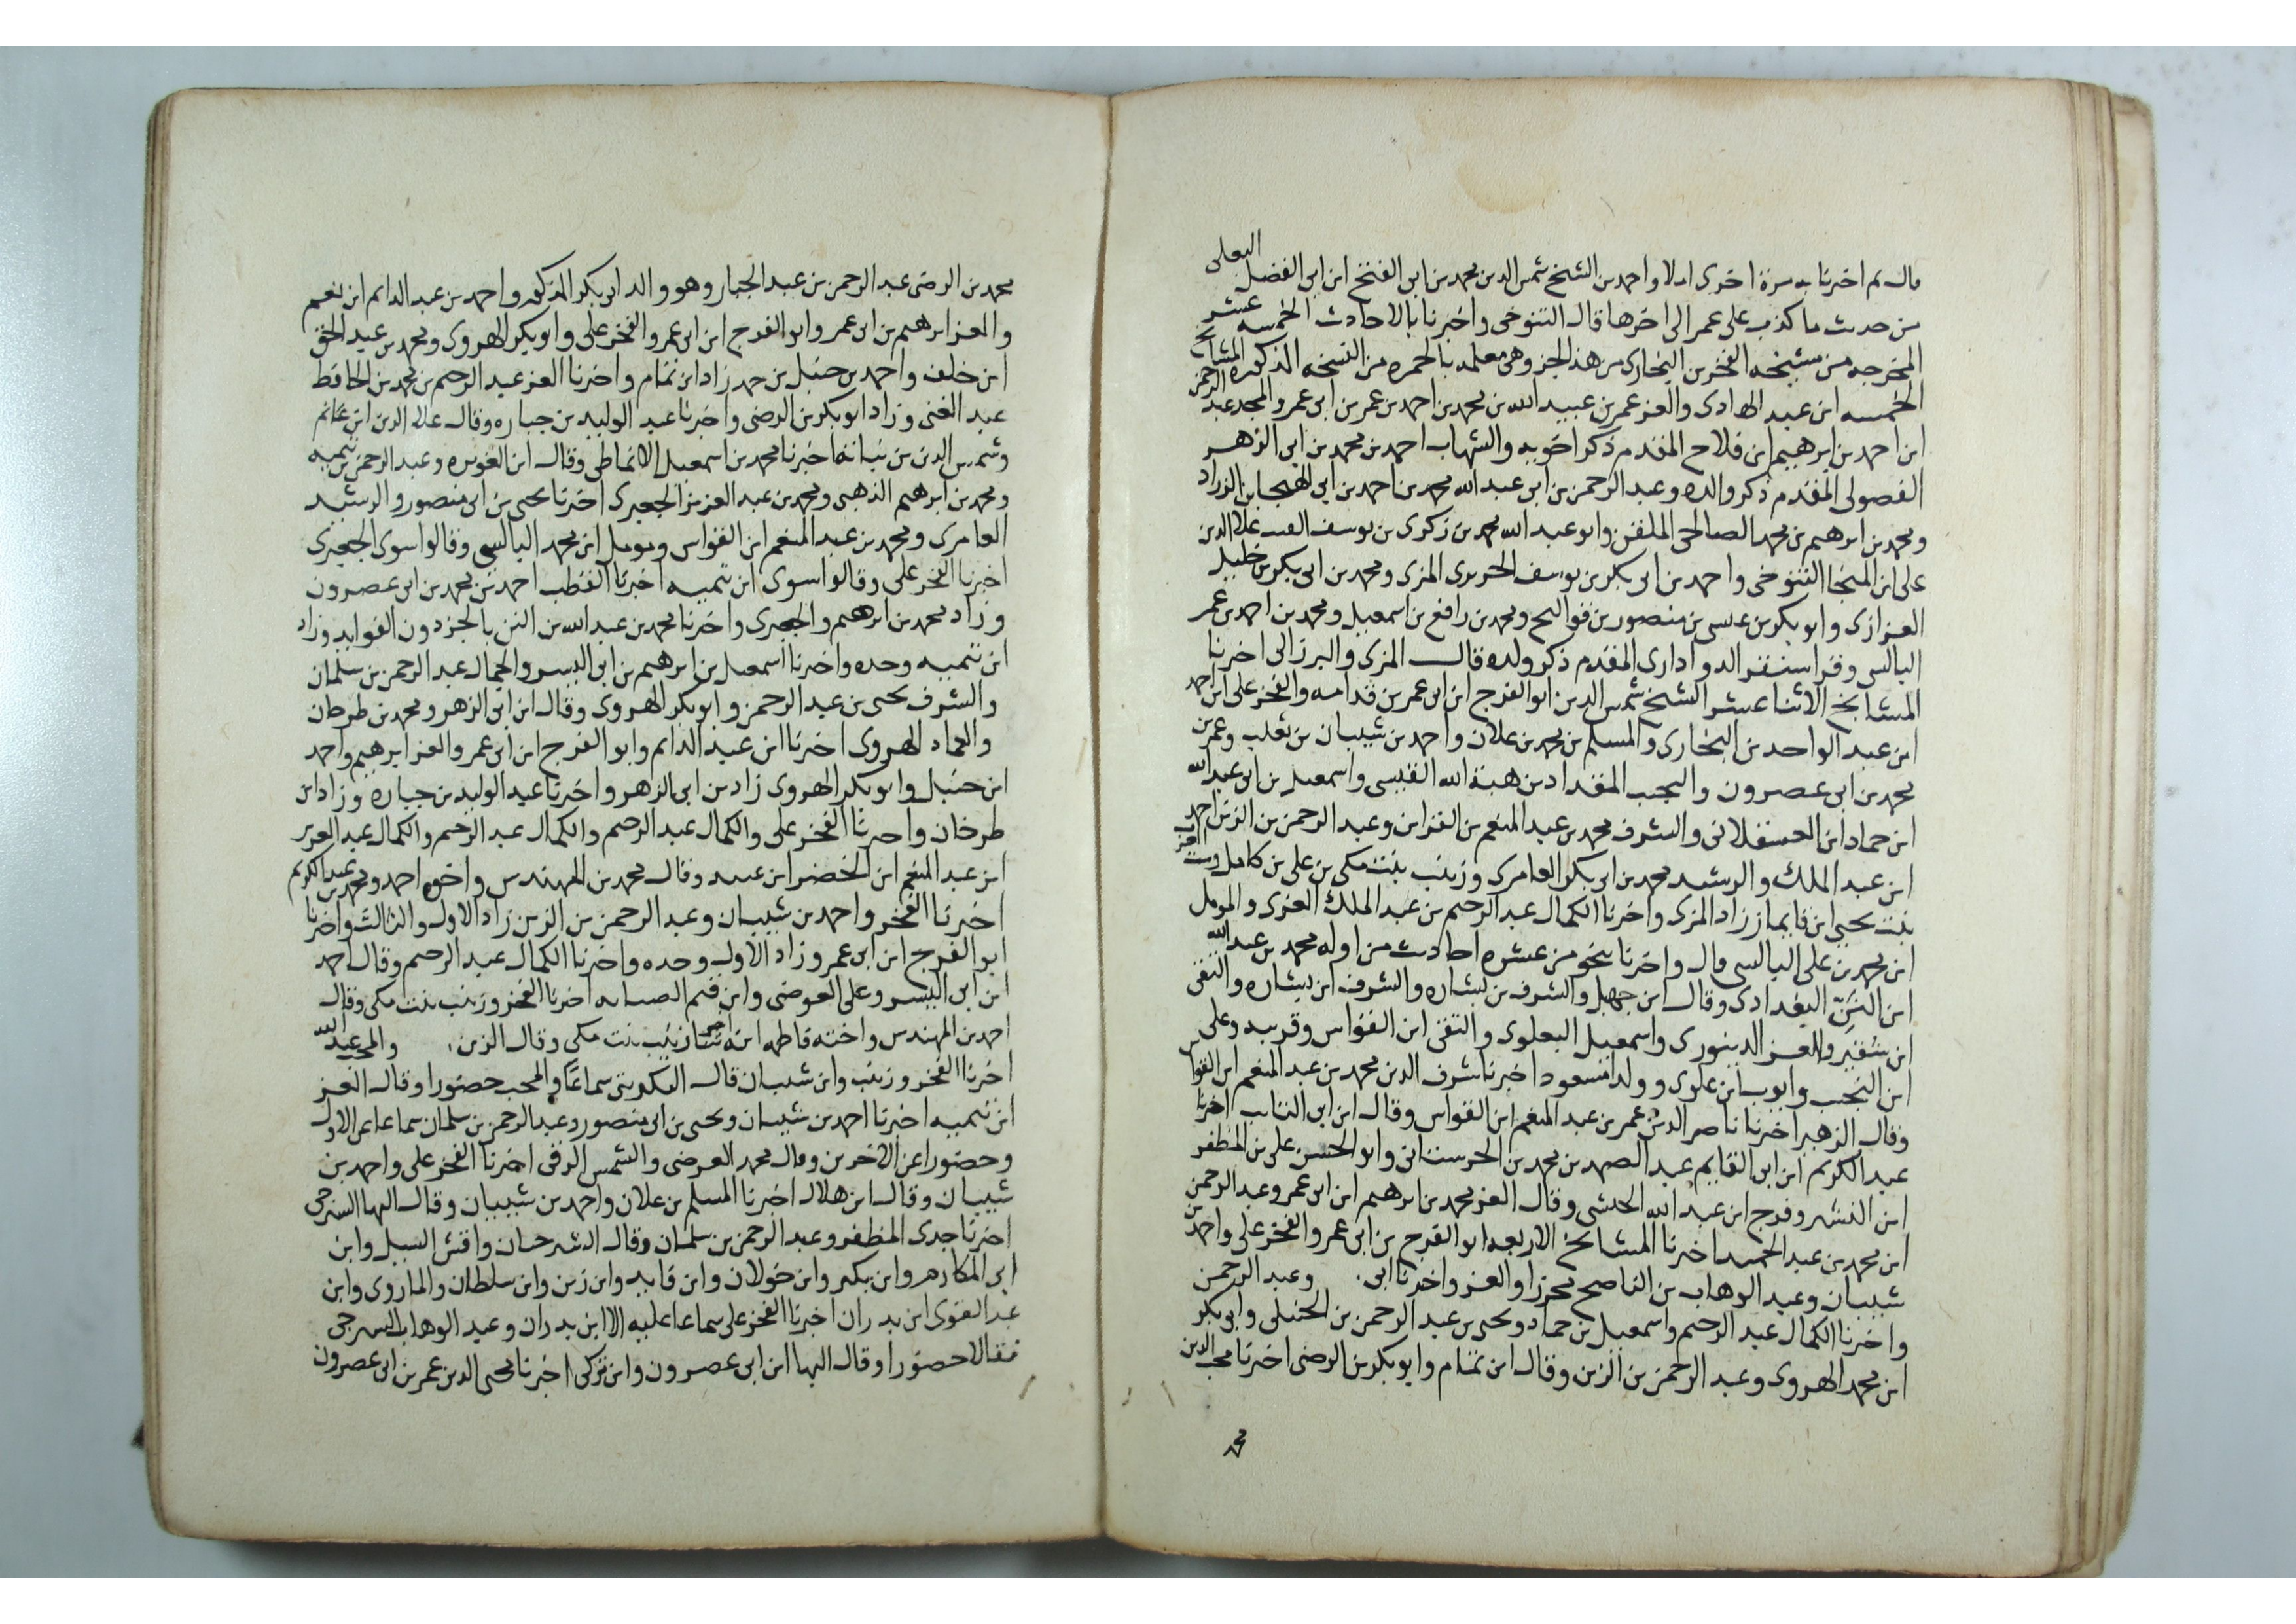 قال ثم اخبرنا به مرة اخرى املا واحمد بن الشيخ شمس الدين محمد بن ابى الفتح ابن ابى الفضل البعلى
من حديث ما كذب على عمر الى اخرها قال التنوخى واخبرنا بالاحاديث الخمسه عشر
المخرجه من مشيخه الفخر بن البخارى من هذ الجز وهى معلمه بالحمره من النسخه المذكوره المشايخ
الخمسه ابن عبد الهادى والعز عمر بن عبيد الله بن محمد بن احمد بن عمر بن ابى عمر والمجد عبد الرحمن
ابن احمد بن ابرهيم ابن فلاح المقدم ذكر اخويه والشهاب احمد بن محمد بن ابى الزهر
الفصولى المقدم ذكر والده وعبد الرحمن بن ابى عبد الله محمد بن احمد بن ابى الهيجا بن الزراد
ومحمد بن ابرهيم بن محمد الصالحى الملقن وابو عبد الله محمد بن زكرى بن يوسف علا الدين
على ابن المنجا التنوخى واحمد بن ابى بكر بن يوسف الحريرى المزى ومحمد بن ابى بكر بن خليل
العزازى وابو بكر بن عيسى بن منصور بن قواليح ومحمد بن رافع بن اسمعيل ومحمد بن احمد بن عمر
البالسى وقراسنقر الدوادارى المقدم ذكر ولده قال المزى والبرزالى اخبرنا
المشايخ الاثنا عشر الشيخ شمس الدين ابو الفرج ابن ابى عمر بن قدامه والفخر على ابن احمد
ابن عبد الواحد بن البخارى والمسلم بن محمد بن علان واحمد بن شيبان بن تغلب وعمر بن
محمد بن ابى عصرون والنجيب المقداد بن هبة الله القيسى واسمعيل بن ابى عبد الله
ابن حماد ابن العسقلانى والشرف محمد بن عبد المنعم بن القواس وعبد الرحمن بن الزين احمد
ابن عبد الملك والرشيد محمد بن ابى بكر العامرى وزينب بنت مكى بن على بن كامل وست العرب
بنت يحيى ابن قايماز زاد المزى واخبرنا الكمال عبد الرحيم بن عبد الملك العزى والمومل
ابن محمد بن على البالسى قال واخبرنا بنحو من عشره احاديث من اوله محمد بن عبد الله
ابن النّنّ البغدادى وقال ابن جهبل والشرف بن بشاره والشرف ابن بشاره والتقى
ابن شقير والعز الدينورى واسمعيل البعلوى والتقى ابن القواس وقريبه وعلى
ابن النجيب وايوب ابن علوى وولد مسعود اخبرنا شرف الدين محمد بن عبد المنعم ابن القواس
وقال الزهير اخبرنا ناصر الدين عمر بن عبد المنعم ابن القواس وقال ابن ابى التايب اخبرنا
عبد الكريم ابن ابى القايم عبد الصمد بن محمد بن الحرستانى وابو الحسن على بن المظفر
ابن النشبى وفرج ابن عبد الله الحبشى وقال العز محمد بن ابرهيم ابن ابى عمر وعبد الرحمن
ابن محمد بن عبد الحميد اخبرنا المشايخ الاربعه ابو الفرج بن ابى عمر والفخر على واحمد بن
شيبان وعبد الوهاب بن الناصح محرزا والعز واخبرنا ابى وعبد الرحمن
واخبرنا الكمال عبد الرحيم واسمعيل بن حماد ويحيى بن عبد الرحمن بن الحنبلى وابى بكر
ابن محمد الهروى وعبد الرحمن بن الزين وقال ابن تمام وابو بكر بن الرضى اخبرنا محب الدين
محمد
محمد بن الرضى عبد الرحمن بن عبد الجبار وهو والد ابى بكر المذكور واحمد بن عبد الدايم ابن نعمه
والعز ابرهيم بن ابى عمر وابو الفرج ابن ابى عمر والفخر على وابو بكر الهروى ومحمد بن عبد الحق
ابن خلف واحمد بن حنبل بن حمد زاد ابن تمام واخبرنا العز عبد الرحيم بن محمد بن الحافظ
عبد الغنى وزاد ابو بكر بن الرضى واخبرنا عبد الوليد بن جباره وقال علا الدين ابن غانم
وشمس الدين بن نباته اخبرنا محمد بن اسمعيل الانماطى وقال ابن الغويره وعبد الرحمن بن تيميه
ومحمد بن ابرهيم الذهبى ومحمد بن عبد العزيز الجعبرى اخبرنا يحيى بن ابى منصور والرشيد
العامرى ومحمد بن عبد المنعم ابن القواس ومومل ابن محمد البالسى وقالوا سوى الجعبرى
اخبرنا الفخر على وقالوا سوى ابن تيميه اخبرنا القطب احمد بن محمد بن ابى عصرون
وزاد محمد بن ابرهيم والجعبرى واخبرنا محمد بن عبد الله بن النن بالجز دون الفوايد وزاد
ابن تيميه وحده واخبرنا اسمعيل بن ابرهيم بن ابى اليسر والجمال عبد الرحمن بن سلمان
والشرف يحيى بن عبد الرحمن وابو بكر الهروى وقال ابن ابى الزهر ومحمد بن طرخان
والعماد الهروى اخبرنا ابن عبد الدايم وابو الفرج ابن ابى عمر والعز ابرهيم واحمد
ابن حنبل وابو بكر الهروى زاد بن ابى الزهر واخبرنا عبد الوليد بن جباره وزاد ابن
طرخان واخبرنا الفخر على والكمال عبد الرحيم والكمال عبد الرحيم والكمال عبد العزيز
ابن عبد المنعم ابن الخضر ابن عبد وقال محمد بن المهندس واخوه احمد ومحمد بن عبد الكريم
اخبرنا الفخر واحمد بن شيبان وعبد الرحمن بن الزين زاد الاول والثالث واخبرنا
ابو الفرج ابن ابى عمر وزاد الاول وحده واخبرنا الكمال عبد الرحيم وقال احمد
ابن ابى اليسر وعلى العوضى وابن قيم الضيائيه اخبرنا الفخر وزينب بنت مكى وقال
احمد بن المهندس واخته فاطمه اخبرتنا زينب بنت مكى وقال الزين والمحب عبد الله
اخبرنا الفخر وزينب وابن شيبان قال التكريتى سماعًا والمحب حضورا وقال العز
ابن تيميه اخبرنا احمد بن شيبان ويحيى بن ابى منصور وعبد الرحمن بن سلمان سماعا عن الاول
وحضورا عن الاخرين وقال محمد العرضى والشمس الرقى اخبرنا الفخر على واحمد بن
شيبان وقال ابن هلال اخبرنا المسلم بن علان واحمد بن شيبان وقال البها السنرجى
اخبرنا جدى المظفر وعبد الرحمن بن سلمان وقال الشرحسان واقش الشبلى وابن
ابى المكارم وابن بكير وابن خولان وابن قايد وابن زين وابن سلطان والماروى وابن
عبد القوى ابن بدران اخبرنا الفخر على سماعا عليه الا ابن بدران وعبد الوهاب السرحى
فقالا حضورا وقال البها ابن ابى عصرون وابن تركى اخبرنا محيى الدين عمر بن ابى عصرون